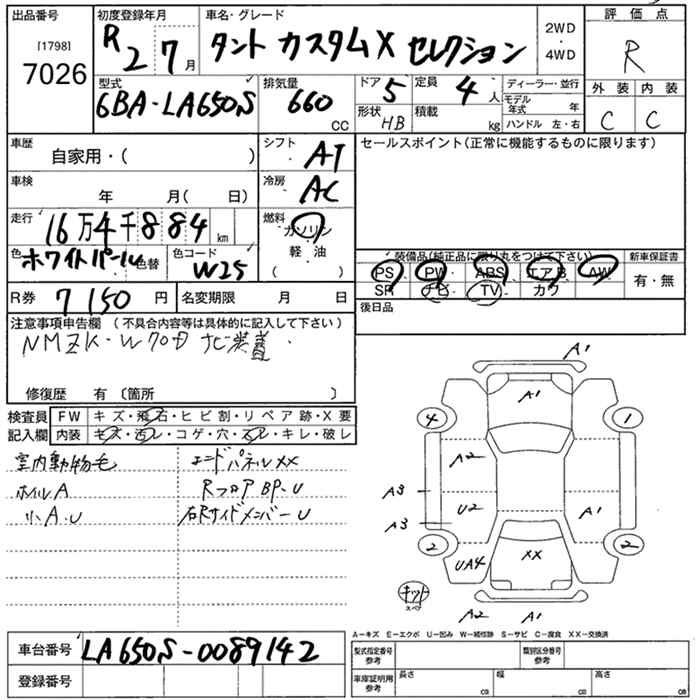 出品番号 初度登録年月 車名・グレード 2WD ・ 4WD 評価点
[1798]
7026
R2 7月 タント カスタムX セレクション R
型式 排気量 ドア 5 定員 4人 ディーラー・並行 外装 内装
6BA-LA650S 660 CC 形状 HB 積載 kg モデル年式 年 C C
ハンドル 左・右
車歴 自家用・( ) シフト AT セールスポイント(正常に機能するものに限ります)
車検 年 月( 日) 冷房 AC
走行 16万4千884 km 燃料 ガソリン
軽・油
( )
色 ホワイトパール 色替 色コード W25
装備品(純正品に限り丸をつけて下さい) 新車保証書
PS PW ABS エアB AW 有・無
SR ナビ TV カワ
R券 7150円 名変期限 月 日 後日品
注意事項申告欄 (不具合内容等は具体的に記入して下さい)
NMZK-W70D ナビ装着
修復歴 有 〔箇所 〕
検査員 FW キズ・飛石・ヒビ割・リペア跡・X要
記入欄 内装 キズ・汚レ・コゲ・穴・スレ・キレ・破レ
室内動物毛 エンドパネルXX
ホイルA RフロアBP-U
小A.U 右RサイドメンバーU
A1
A1
4 1
A2
A3 U2 A1
A3
2 2
UA4 XX
キット
スペア
A2 A1
A-キズ E-エクボ U-凹み W-補修跡 S-サビ C-腐食 XX-交換済
車台番号 LA650S-0089142
型式指定番号 参考 類別区分番号 参考
登録番号
車庫証明用 参考 長さ cm 幅 cm 高さ cm